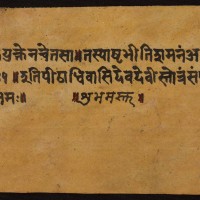 युक्ते नचेतसा॥तस्याघभीतिशमनंअ
९॥इतिपीठाधिवासिदेवदेवीस्तोत्रंसं
मः॥ ॥शुभमस्तु॥